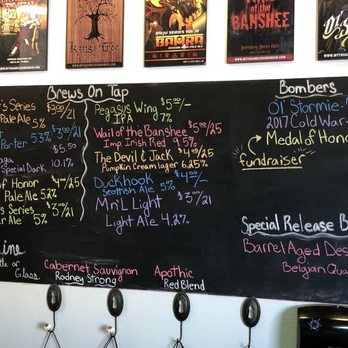 King's Tree
BATARA
the
BANSHEE
Brews On Tap
's Series $3.00/21
Pale Ale 5%
5% $3.00/21
Porter 5.3%
$5.50
Special Dark 10.1%
of Honor $4.00/25
Pale Ale 52
's Series $3.00/21
er Ale 5%
Pegasus Wing $5.00/-
IPA 9%
Wail of the Banshee $5.00/25
Imp Irish Red 9.5%
The Devil & Jack $4.00/25
Pumpkin Cream lager 6.25%
Duckhook $4.00/-
Scottish Ale 5%
Mn'L Light $3.00/21
Light Ale 4.2%
Bombers
Ol' Stormie
2017 Cold War
Medal of Honor
fundraiser
Special Release B
Barrel Aged Des
Belgian Qua
ine
tle or
Glass
Cabernet Sauvignon
Rodney Strong
Apothic
Red Blend